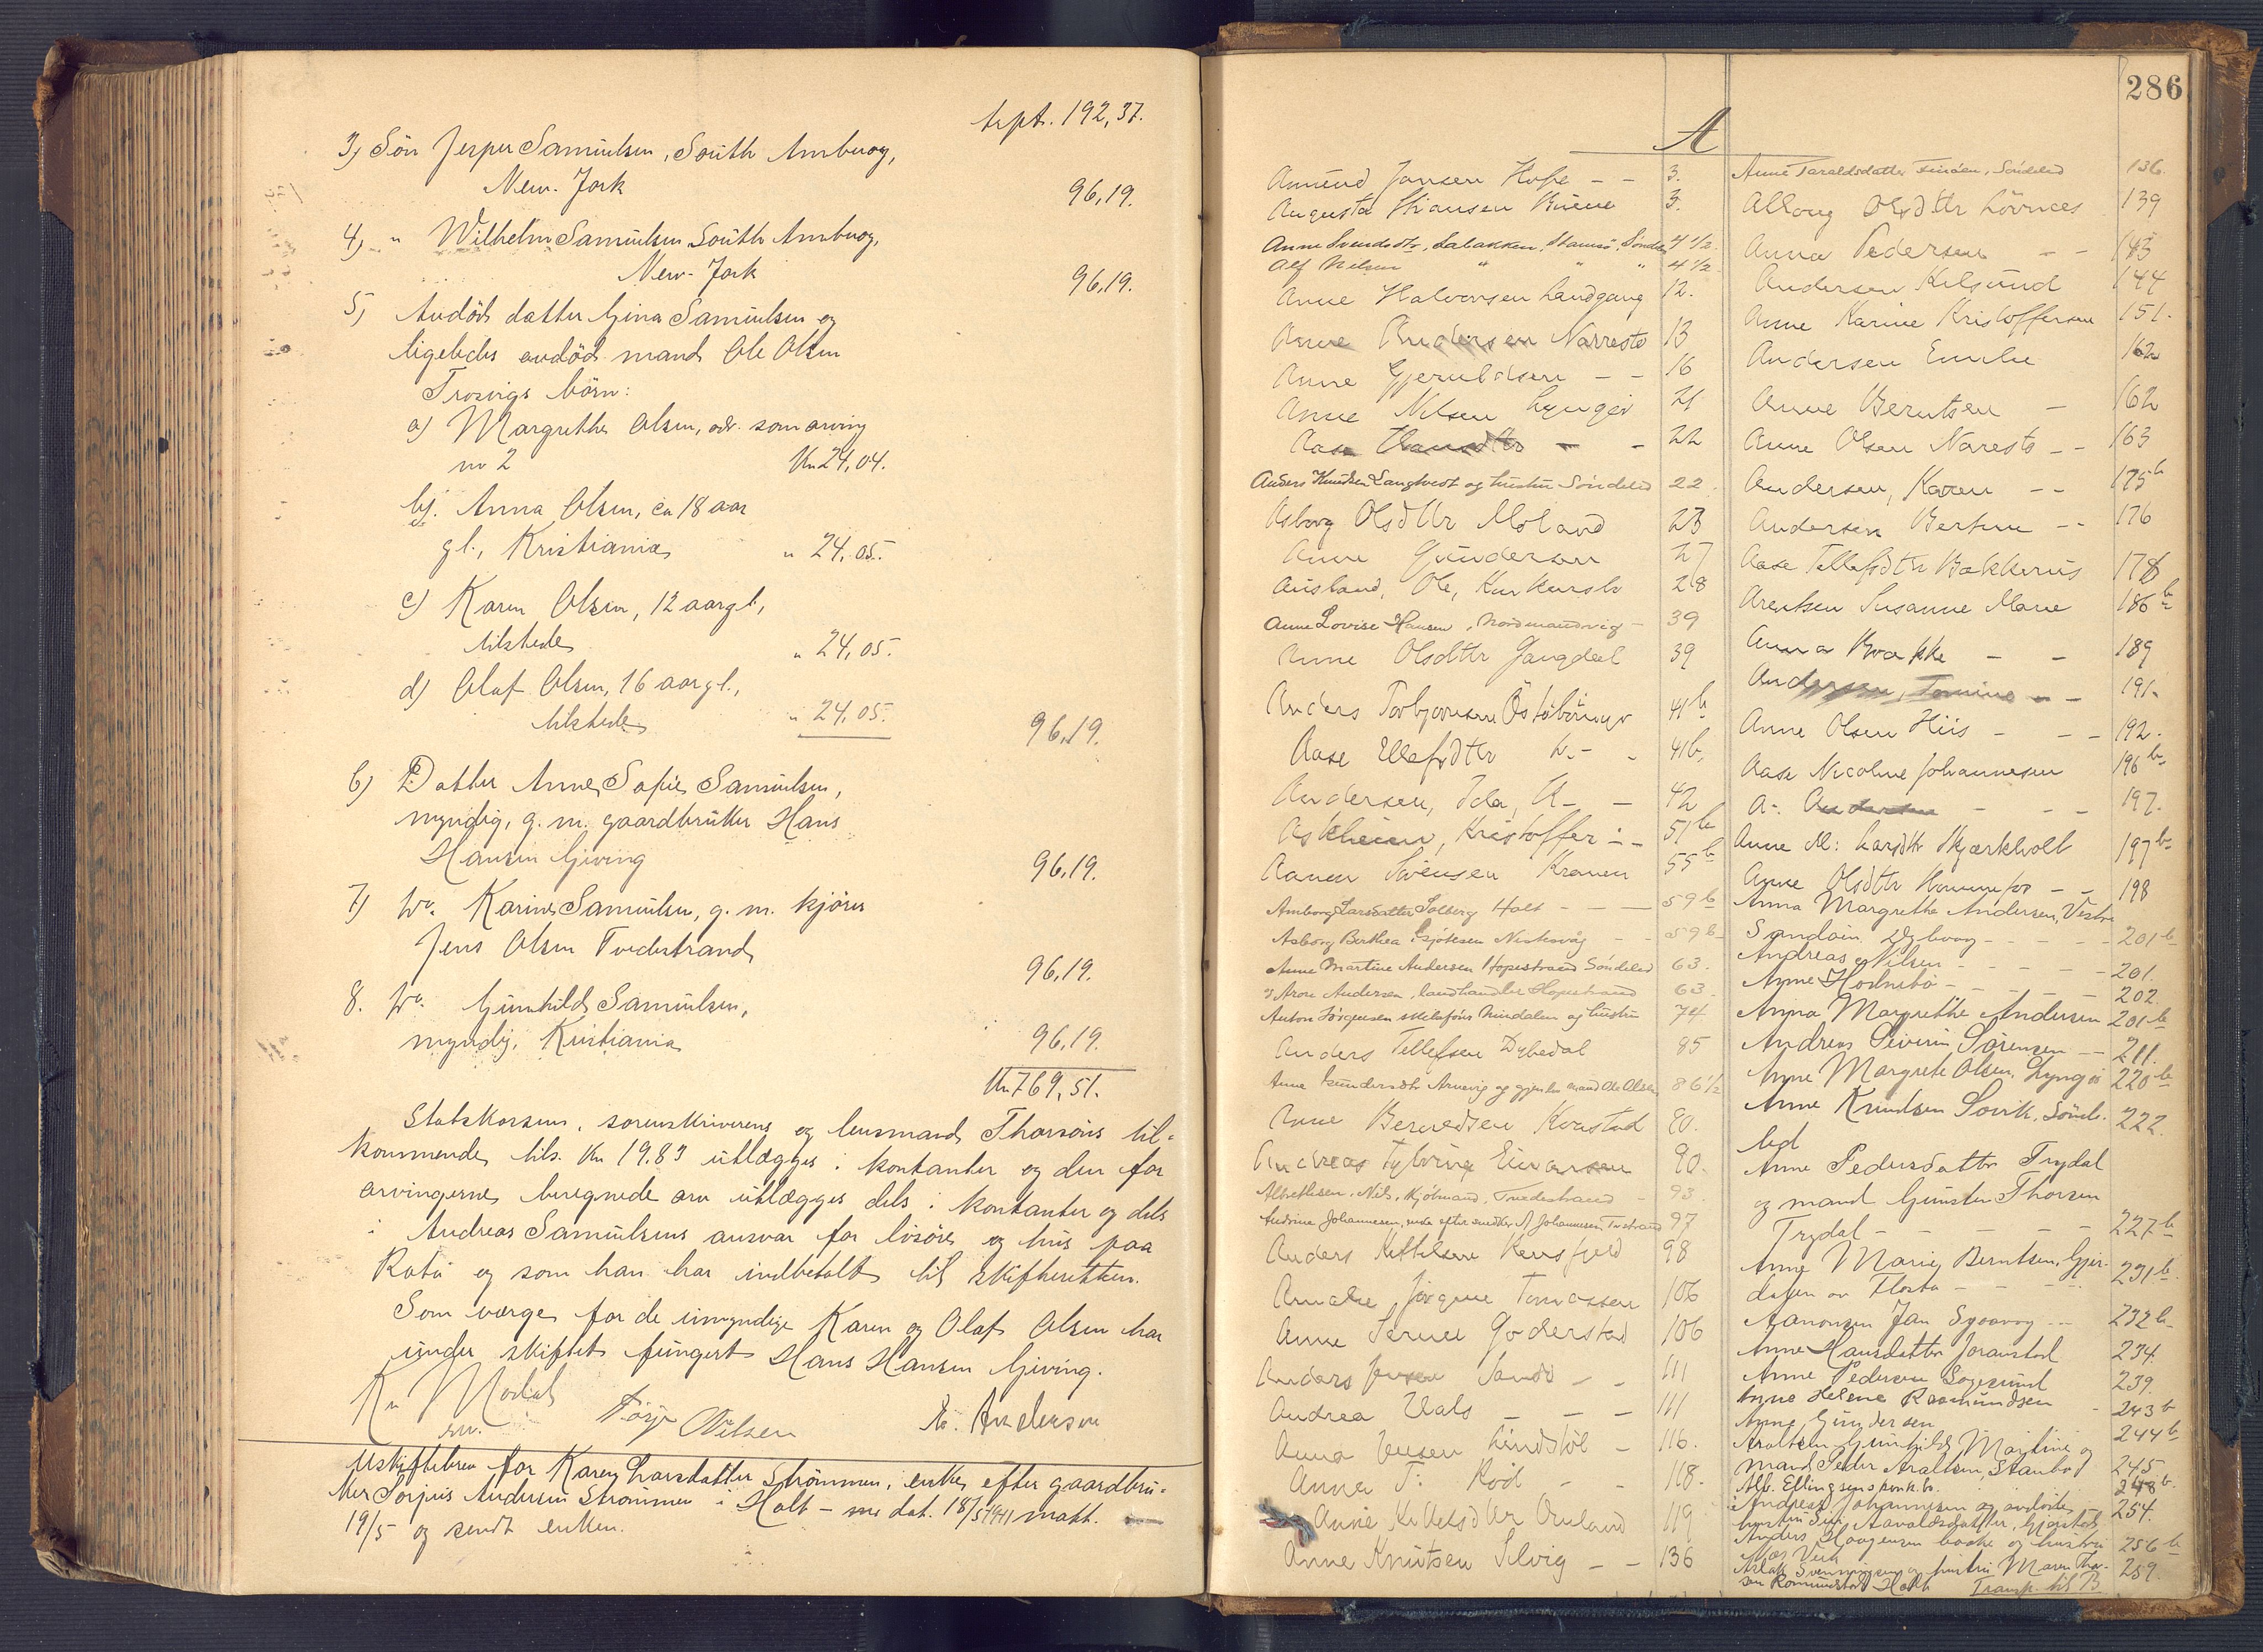 tspt. 192,37.
3) Søn Jesper Samuelsen, South Ambuoy,
New-Jork
96,19.
4) " Wilhelm Samuelsen South Ambuoy,
New-Jork
96,19.
5) Avdöd datter Gina Samuelsen og
ligeledes avdöd mand Ole Olsen
Trosvigs börn:
a) Margrethe Olsen, adr. som arving
nr 2 Kr 24,04.
b). Anna Olsen, ca 18 aar
gl., Kristiania " 24,05.
c) Karen Olsen, 12 aar gl.,
tilstede " 24,05.
d) Olaf Olsen, 16 aar gl.,
tilstede " 24,05.
96,19.
6) Datter Anne Sofie Samuelsen,
myndig, g. m. gaardbruker Hans
Hansen Giving
96,19.
7) Do. Karine Samuelsen, g. m. kjører
Jens Olsen Tvedestrand
96,19.
8. Do. Gunhild Samuelsen,
myndig, Kristiania
96,19.
Kr 769,51.
Statskassens, sorenskriverens og lensmand Thorsøns til-
kommende tils. Kr 19.83 utlægges i kontanter og den for
arvingerne beregnede arv utlægges dels i kontanter og dels
i Andreas Samuelsens ansvar for løsøre og hus paa
Rota og som han har indbetalt til skifteretten.
Som værge for de umyndige Karen og Olaf Olsen har
under skiftet fungert Hans Hansen Giving.
Terje Nilsen A. Anderson
Uskiftebrev for Karen Larsdatter Strømmen, enke efter gaardbru-
ker Jorjus Andersen Strømmen i Holt – me dat. 18/5 1911 matt.
19/5 og sendt enken.
286
A
Amund Jansen Hope – – 3.
Augusta Hansen 3.
Anne Svendsdtr, Labakken, Søndel 4 1/2.
Alf Nilsen " " " 4 1/2
Anne Halvorsen Landgang 12.
Anne Andersen Narresto 13
Anne Gjeruldsen – – 16
Anne Nilsen Lyngør 21
Aase – – 22
Anders Knudsen Langkvest og hustru Söndeled 22.
Asborg Olsdtr Moland 23
Anne Gundersen 27
Ausland, Ole, 28
Anne Lovise Hansen, Nordmandvig – 39
Anne Olsdtr Gangdal 39
Anders Torbjørnsen 41b
Aase Ellefsdtr Do – – 41b,
Andersen, Ida, A – – 42
Askheim, Kristoffer – – 51b
Aanen Sörensen Kranen 55b
Amborg Larsdatter Solberg Holt – – – 59b
Asborg Berthea Gjötesen Neskevåg – – 59b
Anne Martine Andersen Hopestrand Söndeled 63.
Aron Andersen, landhandler Hopestrand 63.
Anton Jörgensen og hustru 74
Anders Tellefsen Dybedal 85
Anne Gundersdtr Arnevig og gjenlev mand Ole Olsen 86 1/2
Anne Berntsen Kvastad 80.
Andreas Einarsen 90.
Albrethsen, Niels, kjøbmand, Tvedestrand – 93.
Andrine Johannesen, enke efter snedker A Johannesen, Tvestrand 97
Anders Keftelsen 98
Amalie Jörgine Tomassen 106
Anne Serine Goderstad 106
Anders Jensen Sandö – – 111
Andrea Vals – – – 111
Anna Jensen Lindstöl – 116.
Anna T. Röd – – 118.
Anne Kittelsdtr Omland 119
Anne Knutsen Selvig – – 136
Anne Taraldsdatter, Söndeled 136.
Alloug Olsdtr Lövnæs 139
Anna Pedersen – – 143
Andersen Kilsund 144
Anne Karine Kristoffersen 151.
Andersen Emilie 162
Anne Berntsen – 162
Anne Olsen Naresto – – 163
Andersen, Karen – – 175b
Andersen Bertine – – 176
Aase Tellefsdtr Bakkerus 178
Arentsen Susanne Marie 186b
Anna Bakke – – 189
Andersen, Tomine – – 191.
Anne Olsen Hiis – – – 192.
Aase Nicoline Johannesen 196b
A. Andersen – – – 197.
Anne M: Larsdtr Skjærkholt 197b
Anne Olsdtr – – 198
Anna Margrethe Andersen, Vestre
Sandøen Dybvaag – – – – 201b
Andreas Nilsen – – – – 201.
Anne Hodnebø – – – 202.
Anna Margrethe Andersen 201b
Andreas Severin Sörensen – – 211.
Anne Margrete Olsen, Lyngör 220b
Anne Knudsen Sørvik, Sönde- 222.
led
Anne Pedersdatter Trydal
og mand Gunsten Thorsen
Trydal – – – – 227b
Anne Marie Berntsen, Gjer-
dalen av Flosta – 231b.
Aanonsen Jan Sydvaag – – 232b
Anne Hansdatter Joranstad 234.
Anne Pedersen Sagesund 239.
Anne Helene Rasmundsen 243b
Anne Gundersen 244b
Araltsen Gunhild Martine og
mand Peder Araltsen, Staubo 245
Alb. Ellingsens sparek. b. 248b.
Andreas Johannesen og avdøde 254.
hustru Siri Aavaldsdatter, Gjerstad
Anders Haagensen bakke og hustru 256b
Aslak Svenningsen og hustru Maren Tho- 259.
sen Romundstad Holt Transp. til B